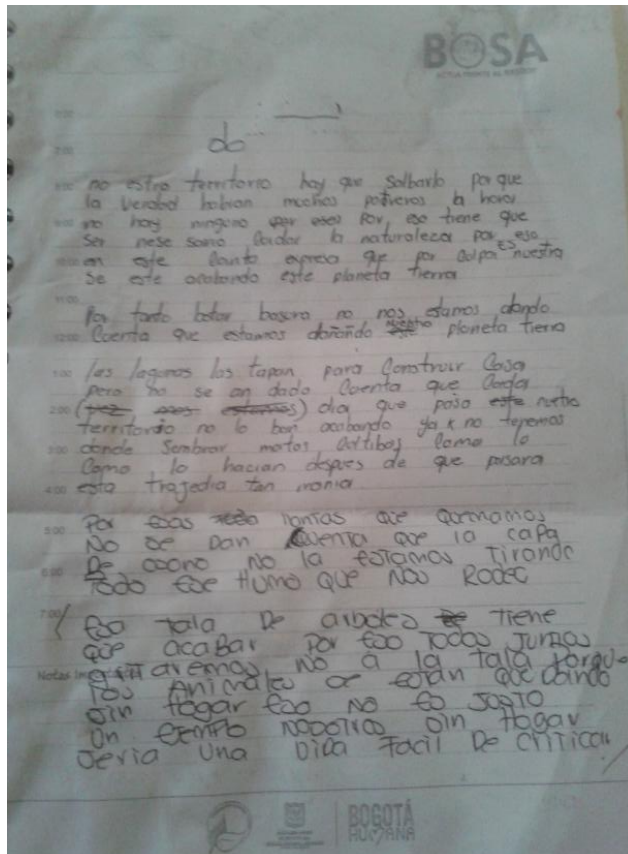 BOSA
do
8:00 no estro territorio hay que salbarlo por que
la verdad habian muchos potreros la hora
9:00 no hay ninguno por eso tiene que
ser nese sario cuidar la naturaleza por eso
10:00 en este canto expreso que por culpa ES nuestra
se este acabando este planeta tierra
11:00
Por tanto botar basura no nos estamos dando
12:00 Cuenta que estamos dañando planeta tierra
1:00 las lagunas las tapan para Construir Casa
pero no se an dado Cuenta que Cada
2:00 dia que pasa nuestro
territorio no lo ban acabando ya x no tenemos
3:00 donde Sembrar matas Cultibos Como lo
Como lo hacian despues de que pasara
4:00 esta tragedia tan
5:00 Por esas llantas que quemamos
No se Dan Cuenta que la capa
6:00 De ozono No la estamos Tirando
Todo ese Humo que Nos Rodea
7:00 Esa tala De arboles se Tiene
que acabar Por eso Todos Juntos
Notas aremos No a la Tala Porque
los Animales se estan quedando
sin Hogar Eso No Es Justo
un ejemplo nosotros sin Hogar
seria una Dida Facil De criticar
BOGOTÁ
HUMANA